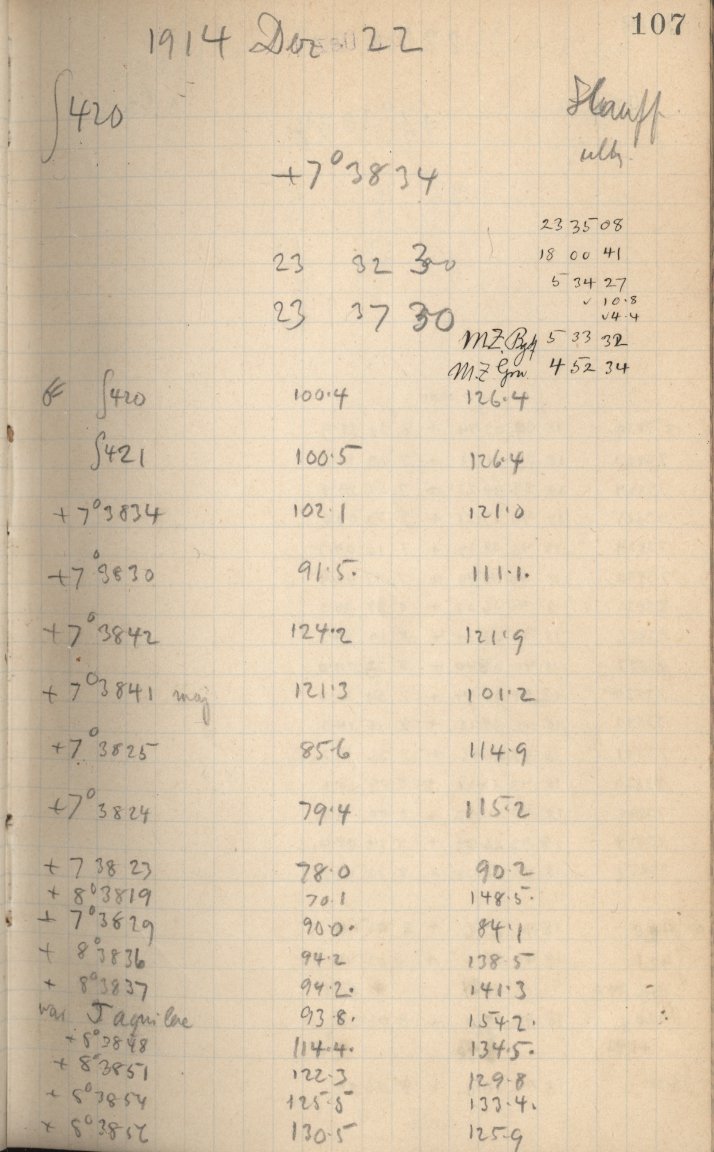 107
1914 Dez 22
∫420
+7° 3834
23 35 08
18 00 41
23 32 30
5 34 27
10.8
23 37 30
4.4
M.Z. 5 33 32
M.Z Grw 4 52 34
∫420 100.4 126.4
∫421 100.5 126.4
+7° 3834 102.1 121.0
+7° 3830 91.5. 111.1.
+7° 3842 124.2 121.9
+7° 3841 maj 121.3 101.2
+7° 3825 85.6 114.9
+7° 3824 79.4 115.2
+7 3823 78.0 90.2
+8° 3819 70.1 148.5.
+7° 3829 90.0. 84.1
+8° 3836 94.2 138.5
+8° 3837 94.2. 141.3
var J aquilae 93.8. 154.2.
+8° 3848 114.4. 134.5.
+8° 3851 122.3 129.8
+8° 3854 125.5 133.4.
+8° 130.5 125.9